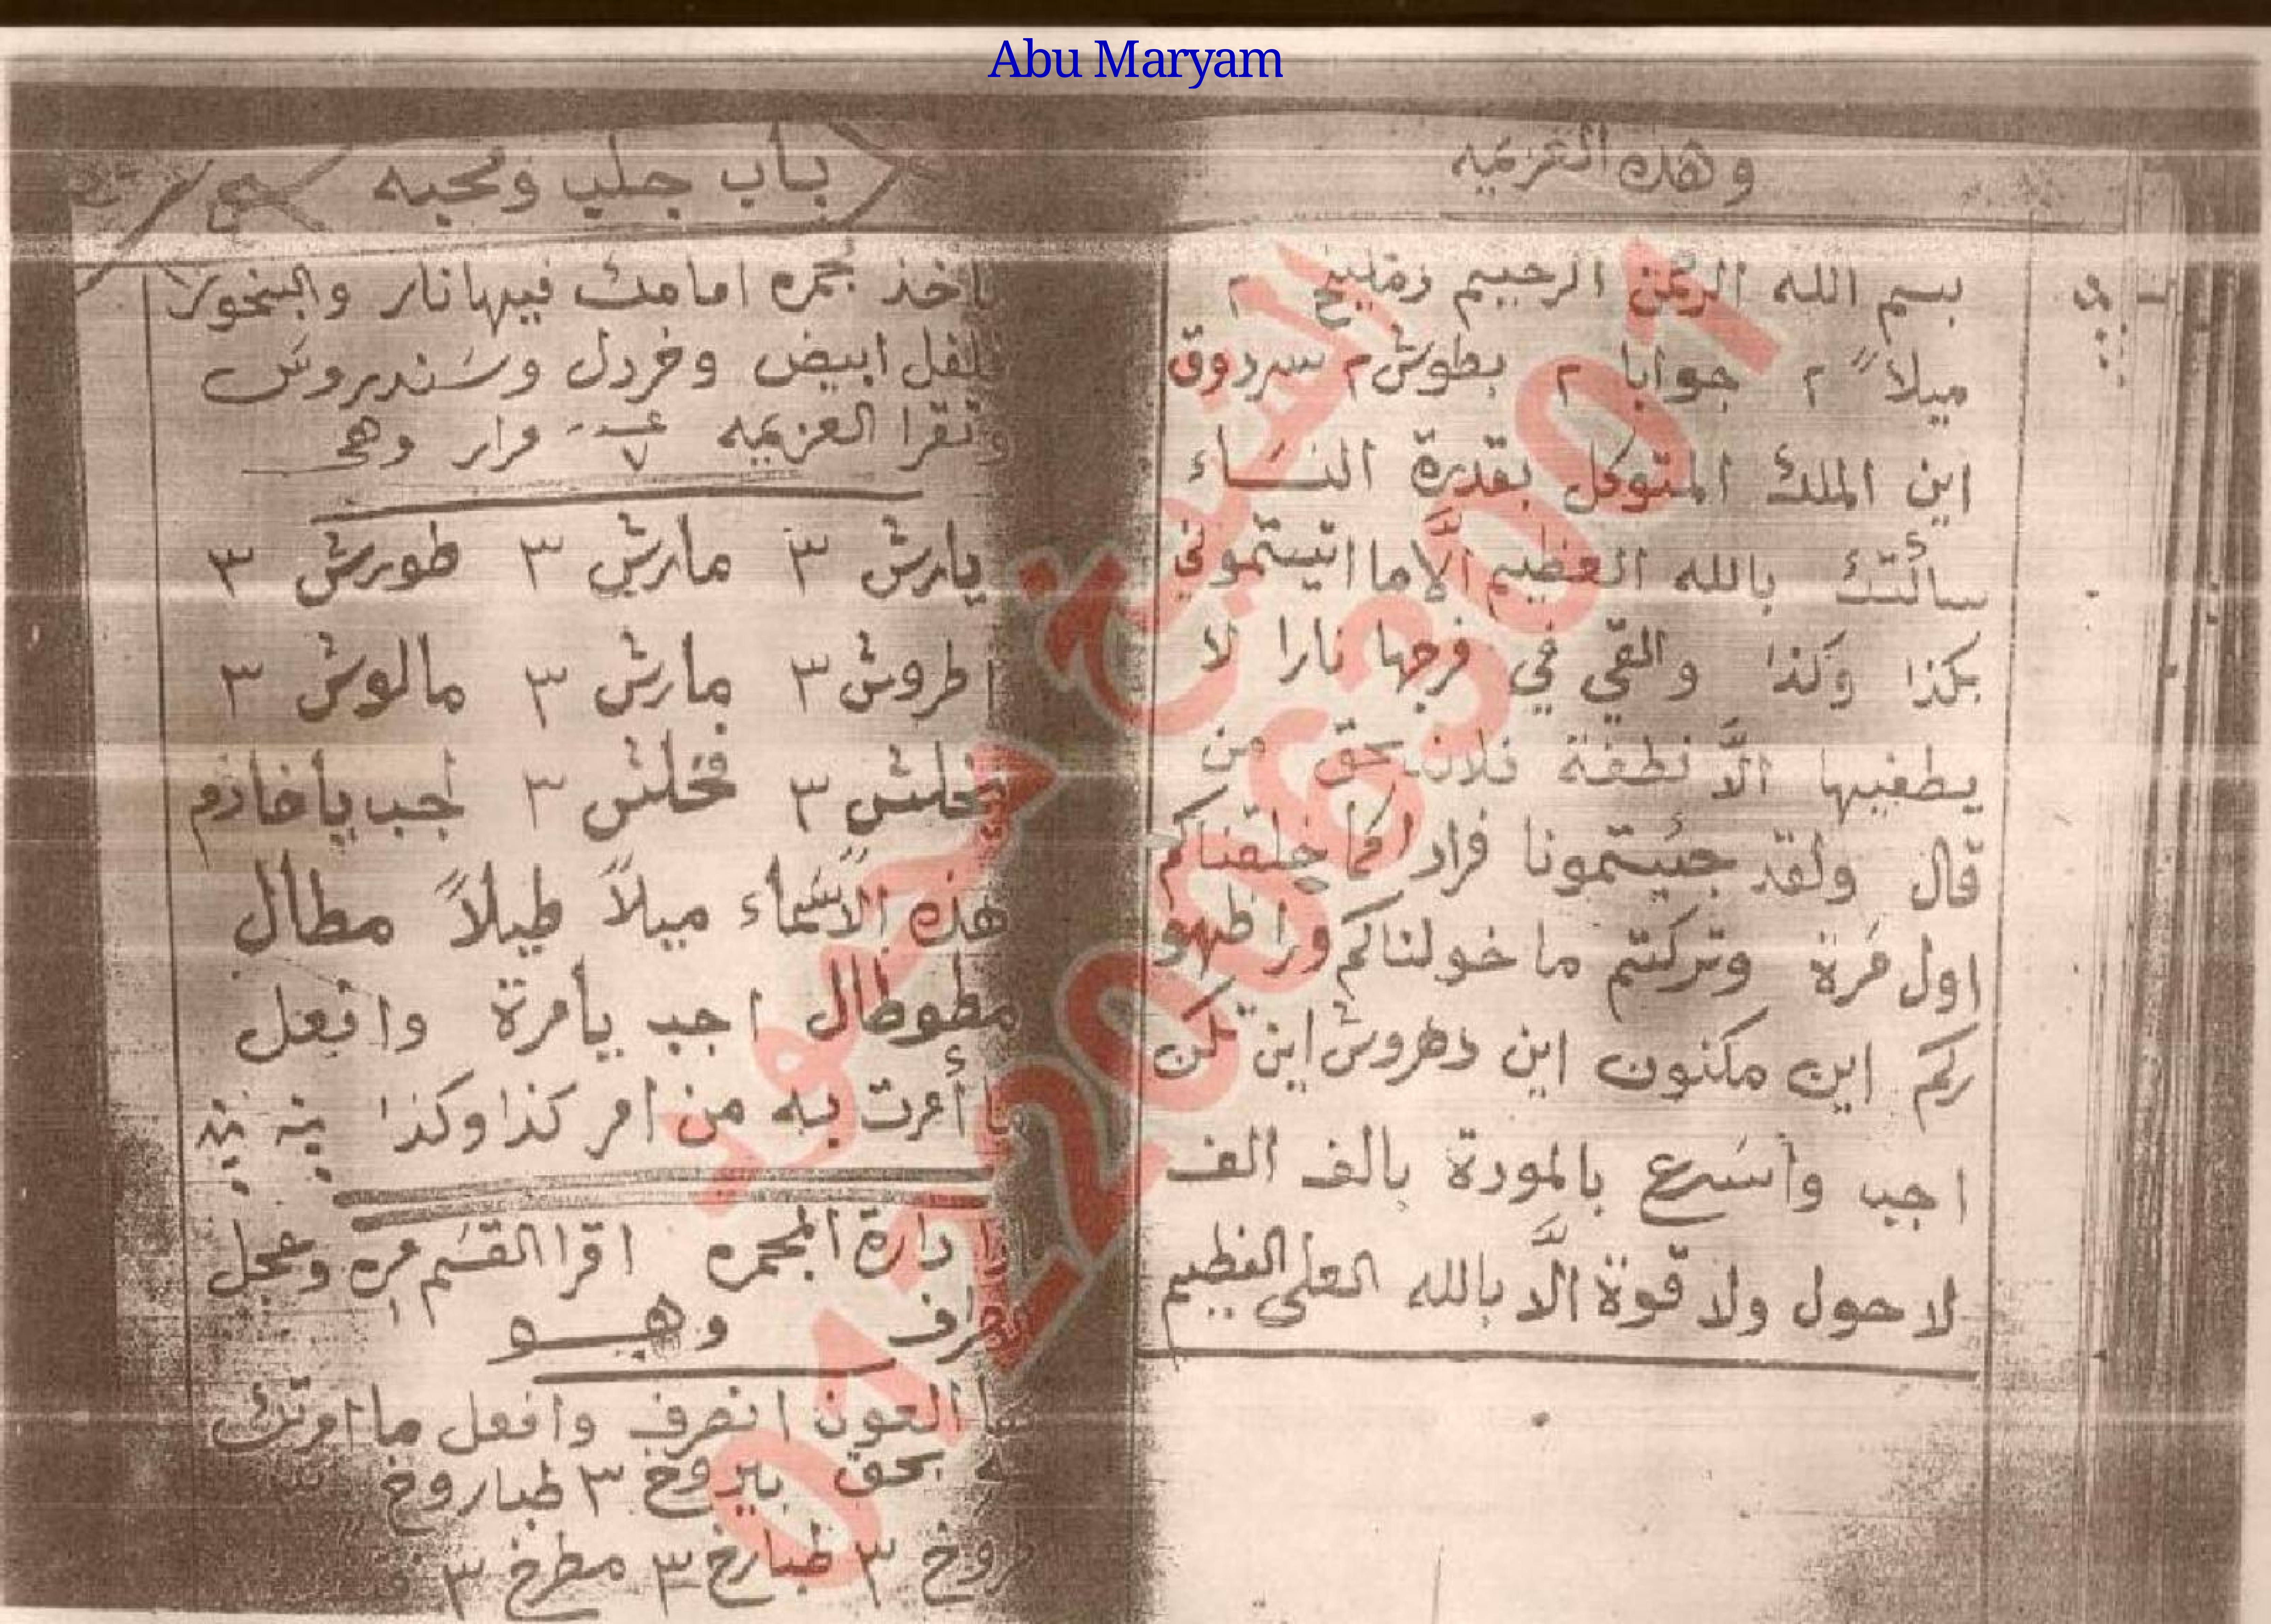 Abu Maryam
وهذه العزيمه
بسم الله الرحمن الرحيم زمليخ ٢
ميلاً ٢ جوابا ٢ بطوش ٢ سردوق
اين الملك المتوكل بقدرة النساء
سألتك بالله العظيم الَّا ما اتيتموني
بكذا وكذا والقي في فرجها نارا لا
يطفيها الَّا نطفة فلان بحق من
قال ولقد جئيتمونا فرادا كما خلقناكم
اول مرة وتركتم ما خولناكم ورا ظهو
ركم اين مكنون اين دهروش اين تكن
اجب واسرع بالمودة بالف الف
لا حول ولا قوة الَّا بالله العلى العظيم
باب جلب ومحبه
تاخذ مجمره امامك فيها نار والبخور
فلفل ابيض وخردل وسندروس
وتقرا العزيمه ٧ مرار وهى
يارش ٣ مارش ٣ طورش ٣
اطروش ٣ مارش ٣ مالوش ٣
٣ فخلش ٣ اجب يا خادم
هذه الاسماء ميلاً طيلاً مطال
مطوطال اجب يا مرة وافعل
ما أمرت به من امر كذا وكذا
اذا دارة المجمره اقرا القسم مره وعجل
وهو
العون انصرف وافعل ما امرتك
به بحق بيروخ ٣ طباروخ
روخ ٣ طبارخ ٣ مطرخ ٣
الشيخ محمود
01220063001